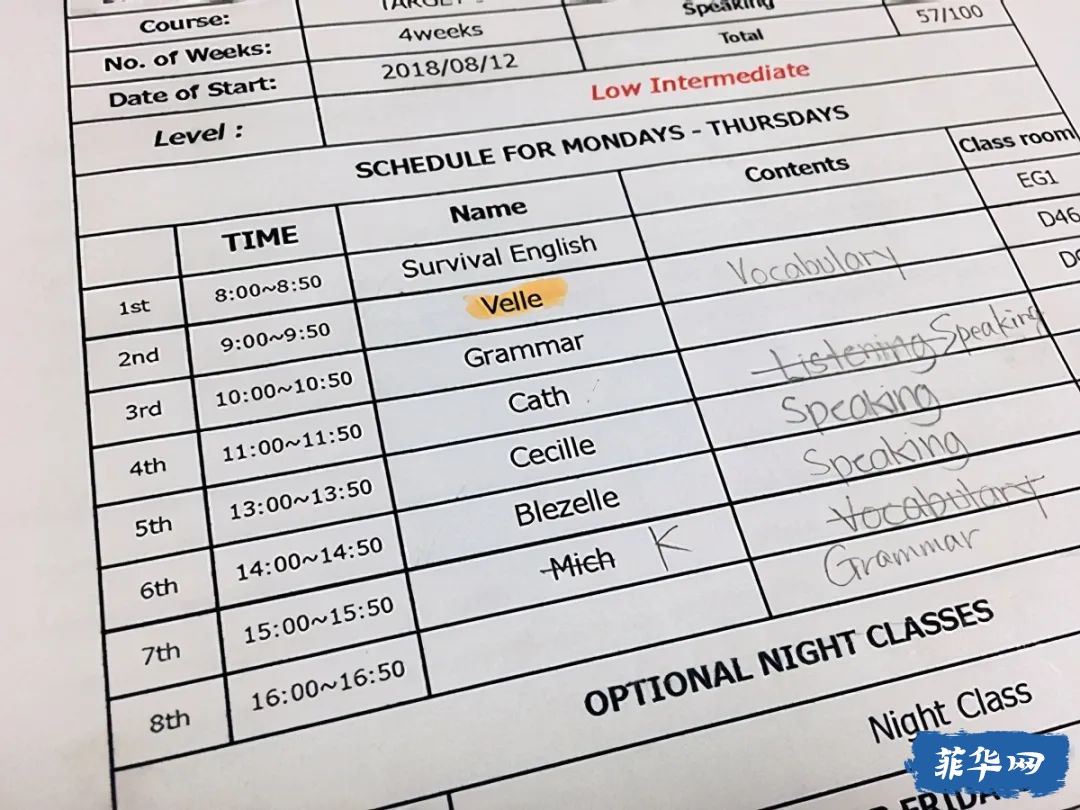 Course: TARGET Speaking
No. of Weeks: 4weeks Total 57/100
Date of Start: 2018/08/12
Level : Low Intermediate
SCHEDULE FOR MONDAYS - THURSDAYS
TIME Name Contents Class room
1st 8:00~8:50 Survival English EG1
2nd 9:00~9:50 Velle Vocabulary D46
3rd 10:00~10:50 Grammar
4th 11:00~11:50 Cath Listening Speaking
5th 13:00~13:50 Cecille Speaking
6th 14:00~14:50 Blezelle Speaking
7th 15:00~15:50 Mich K Vocabulary Grammar
8th 16:00~16:50
OPTIONAL NIGHT CLASSES
Night Class
菲华网